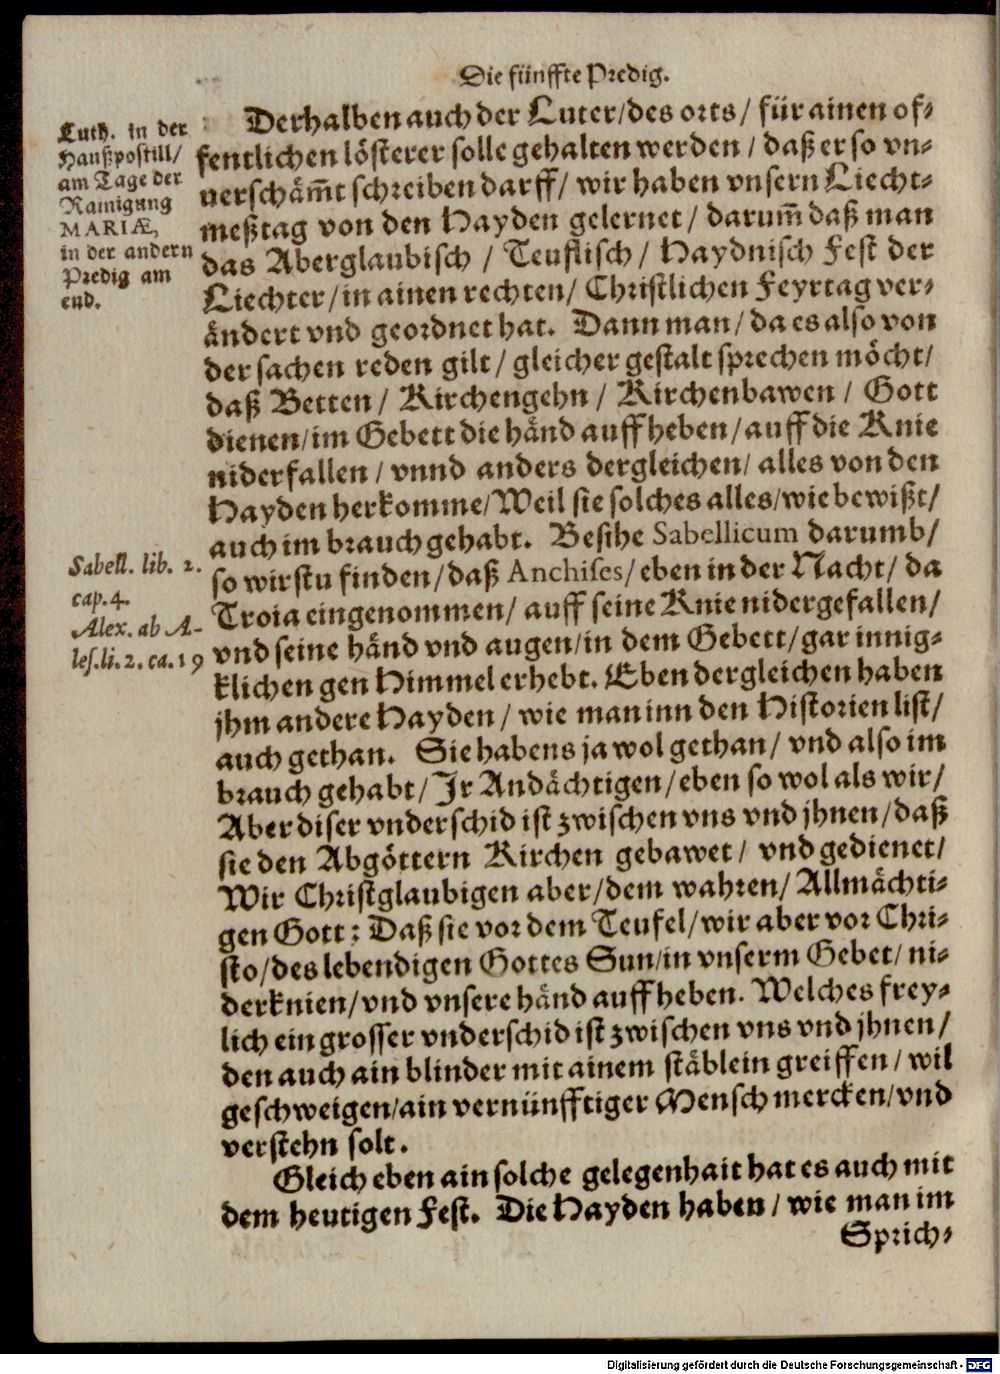 Die fünffte Predig.
Luth. in der
Haußpostill/
am Tage der
Rainigung
MARIÆ,
in der andern
Predig am
end.
Derhalben auch der Luter/des orts/ für ainen of-
fentlichen lösterer solle gehalten werden / daß er so vn-
uerschäm̃t schreiben darff/ wir haben vnsern Liecht-
meßtag von den Hayden gelernet/ darum̃ daß man
das Aberglaubisch / Teuflisch / Haydnisch Fest der
Liechter/in ainen rechten/ Christlichen Feyrtag ver-
ändert vnd geordnet hat. Dann man/ da es also von
der sachen reden gilt / gleicher gestalt sprechen möcht/
daß Betten / Kirchengehn / Kirchenbawen / Gott
dienen/im Gebett die händ auffheben/auff die Knie
niderfallen / vnnd anders dergleichen/ alles von den
Hayden herkomme/Weil sie solches alles/wie bewißt/
auch im brauch gehabt. Besihe Sabellicum darumb/
so wirstu finden/daß Anchises/eben in der Nacht/ da
Troia eingenommen/ auff seine Knie nidergefallen/
vnd seine händ vnd augen/in dem Gebett/gar innig-
klichen gen Himmel erhebt. Eben dergleichen haben
jhm andere Hayden / wie man inn den Historien list/
auch gethan. Sie habens ja wol gethan/ vnd also im
brauch gehabt/ Jr Andächtigen/eben so wol als wir/
Aber diser vnderschid ist zwischen vns vnd jhnen/daß
sie den Abgöttern Kirchen gebawet/ vnd gedienet/
Wir Christglaubigen aber/dem wahren/ Allmächti-
gen Gott: Daß sie vor dem Teufel/wir aber vor Chri-
sto/des lebendigen Gottes Sun/in vnserm Gebet/ ni-
derknien/vnd vnsere händ auffheben. Welches frey-
lich ein grosser vnderschid ist zwischen vns vnd jhnen/
den auch ain blinder mit ainem stäblein greiffen/ wil
geschweigen/ain vernünfftiger Mensch mercken/vnd
verstehn solt.
Sabell. lib. 2.
cap. 4.
Alex. ab A-
les. li. 2. ca. 19
Gleich eben ain solche gelegenhait hat es auch mit
dem heutigen Fest. Die Hayden haben / wie man im
Sprich-
Digitalisierung gefördert durch die Deutsche Forschungsgemeinschaft - DFG